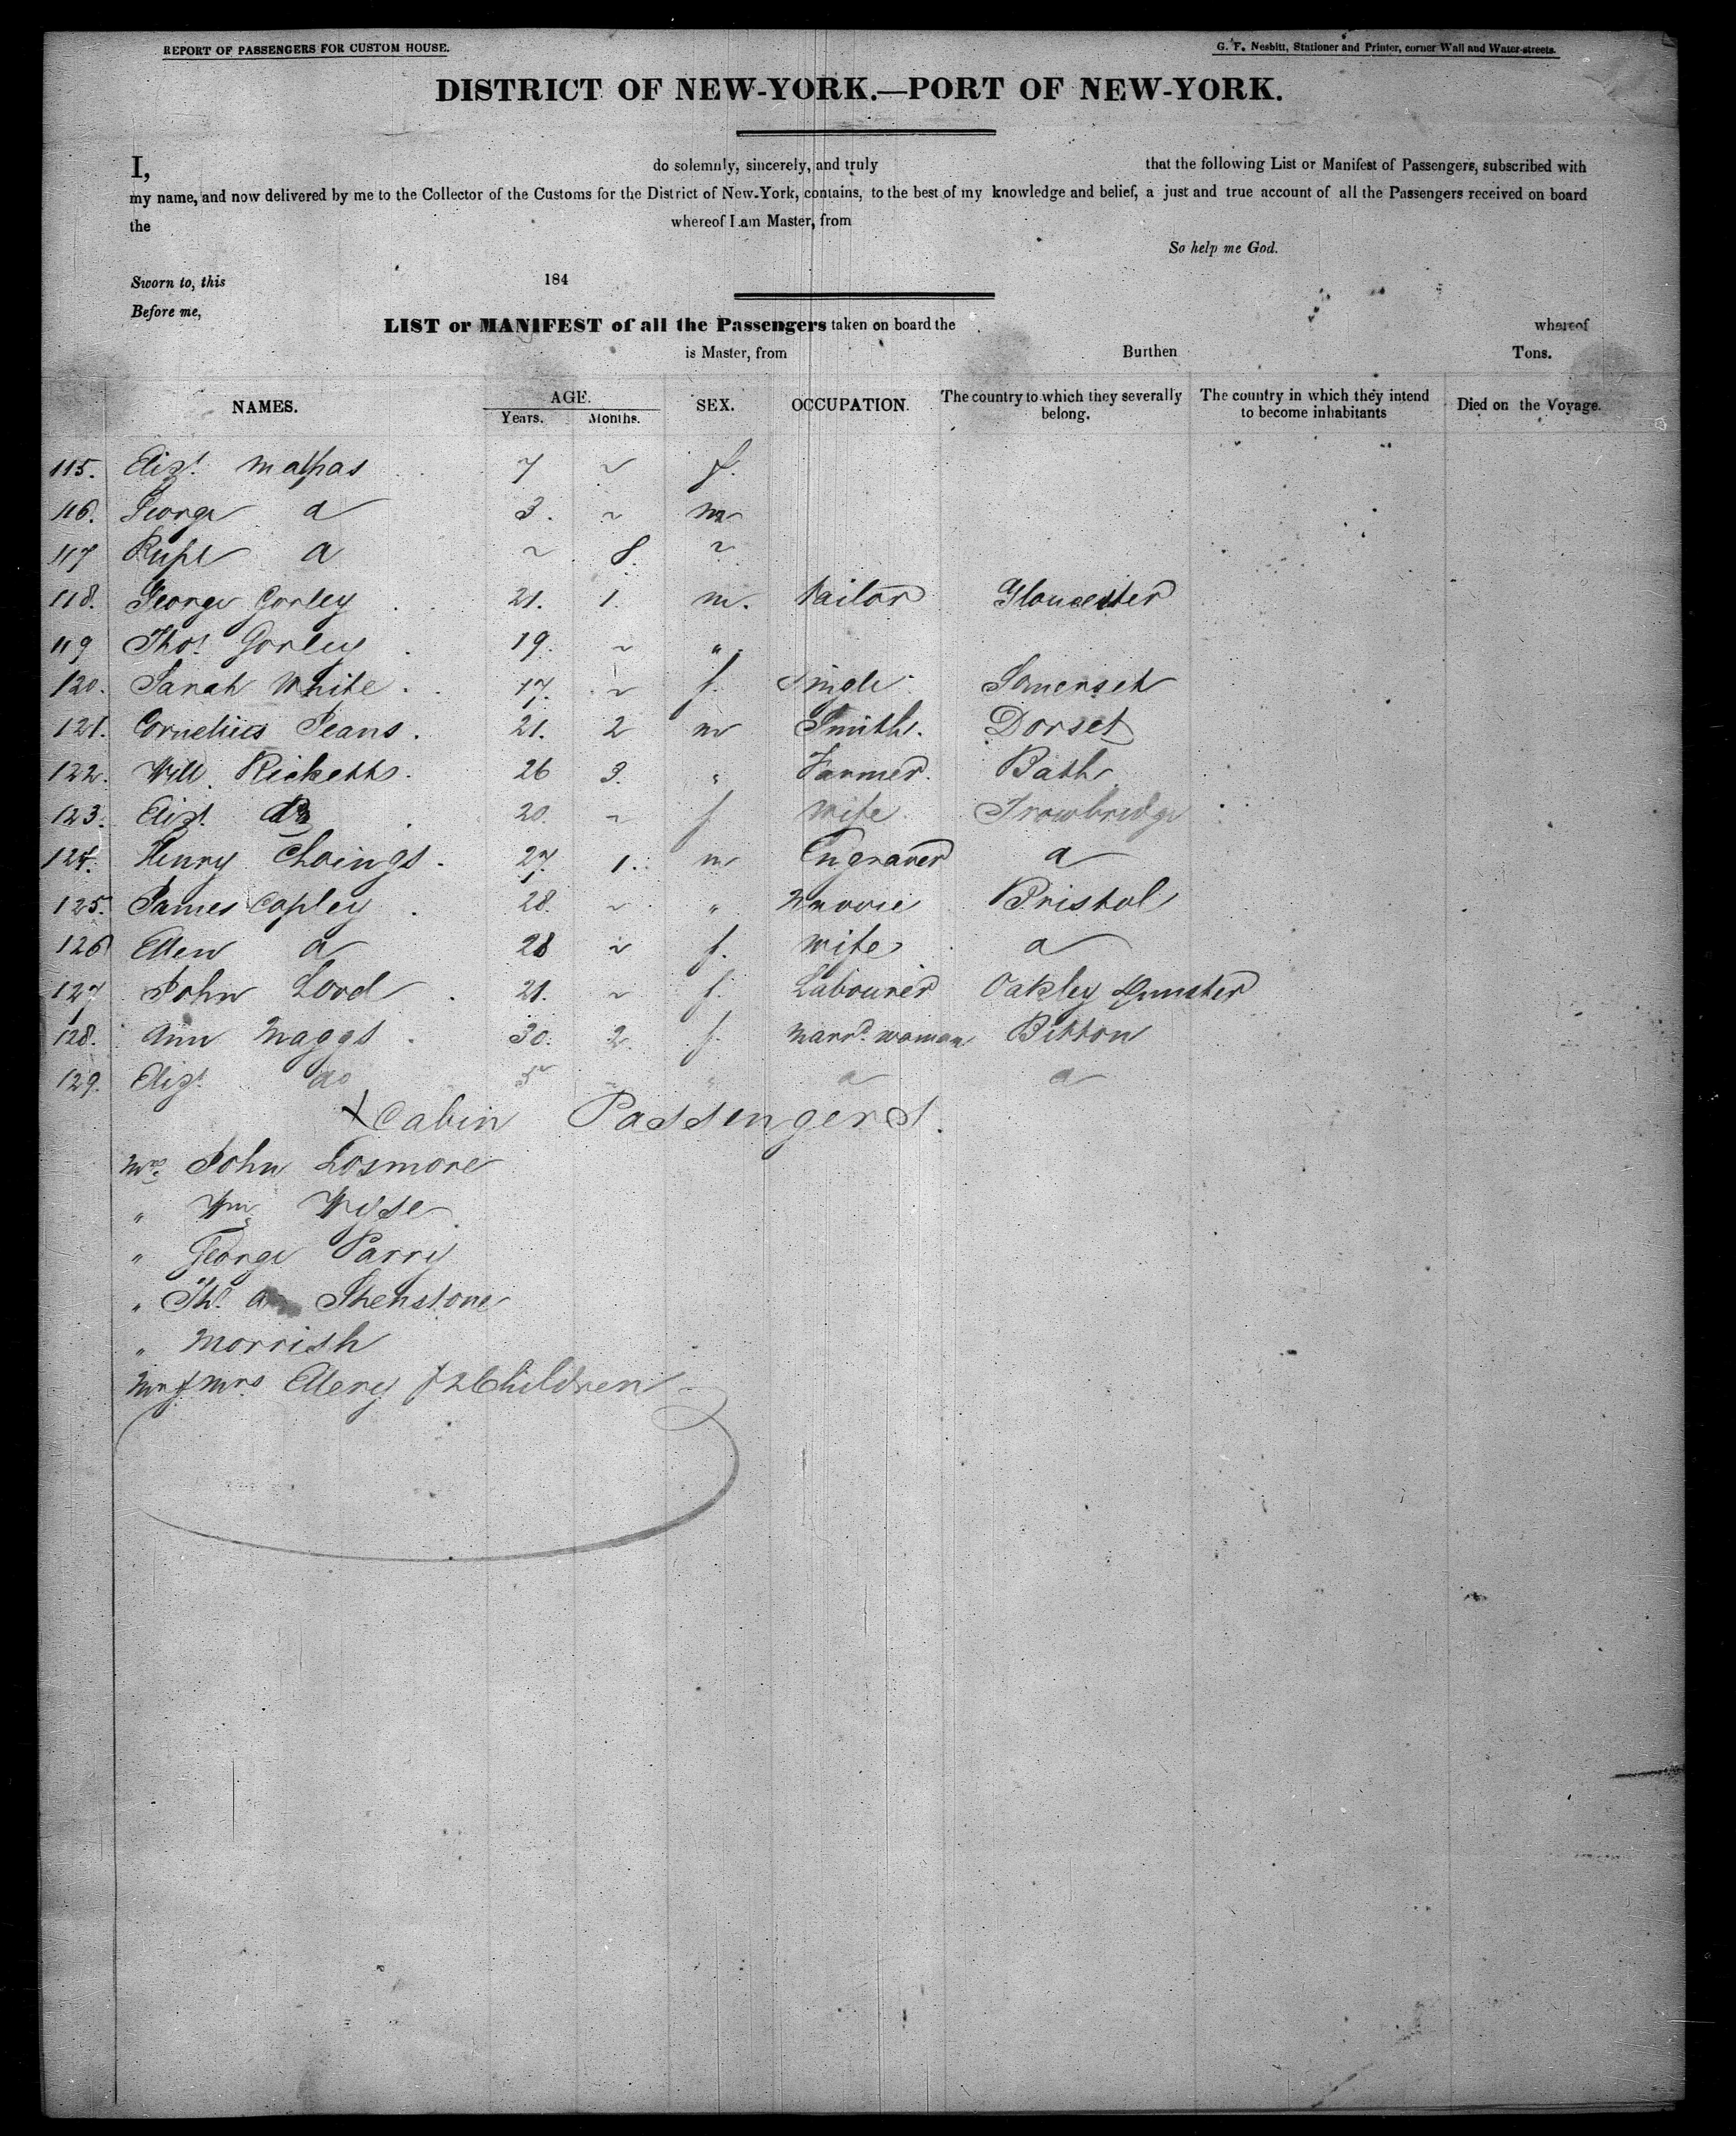 REPORT OF PASSENGERS FOR CUSTOM HOUSE.
G. F. Nesbitt, Stationer and Printer, corner Wall and Water-streets.
DISTRICT OF NEW-YORK.—PORT OF NEW-YORK.
I, do solemnly, sincerely, and truly that the following List or Manifest of Passengers, subscribed with
my name, and now delivered by me to the Collector of the Customs for the District of New-York, contains, to the best of my knowledge and belief, a just and true account of all the Passengers received on board
the whereof I am Master, from
So help me God.
Sworn to, this 184
Before me,
LIST or MANIFEST of all the Passengers taken on board the whereof
is Master, from Burthen Tons.
NAMES. AGE. SEX. OCCUPATION. The country to which they severally belong. The country in which they intend to become inhabitants Died on the Voyage.
Years. Months.
115. Eliz. 7 ~ f.
116. George 3. ~ m
117 ~ 8. ~
118. George Gorley 21. 1. m. Tailor Gloucester
119 Thos. Gorley 19. ~ "
120. Sarah White 17. ~ f. Single Somerset
121. Cornelius Jeans. 21. 2 m Smith. Dorset
122. Will. Ricketts. 26 3. " Farmer. Bath
123. Eliz. do 20. ~ f wife Trowbridge
124. Henry 27. 1. m Engraver
125. James Copley 28. ~ " Bristol
126 Ellen 28 ~ f. wife
127 John Lovel 21. ~ f. Labourer Oakley
128. Ann Maggs 30. 2. f. Marrd. woman Bitton
129. Eliz. do
Cabin Passengers.
Mr. John Losmore
" Wm. Wyse
" George Parry
" Th. Shenstone
" Morrish
Mr & Mrs Ellery & 2 Children